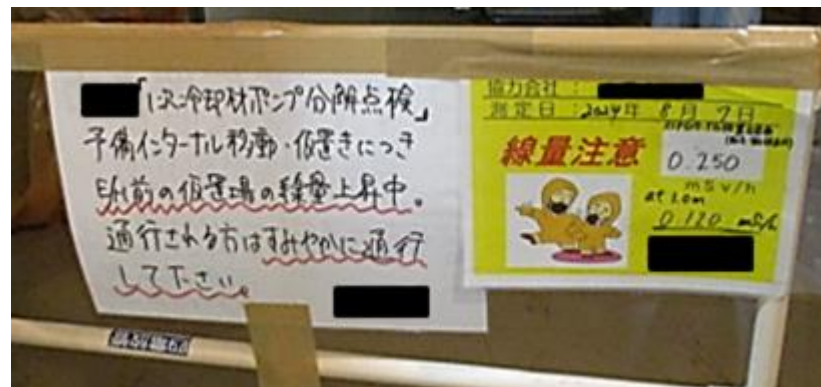 「1次冷却材ポンプ分解点検」
予備インターナル移動・仮置きにつき
E/H前の仮置場の線量上昇中。
通行される方はすみやかに通行
して下さい。
協力会社:
測定日:2024年 8月 7日
線量注意
0.250
mSv/h
at 1.0m
0.120 mSv/h